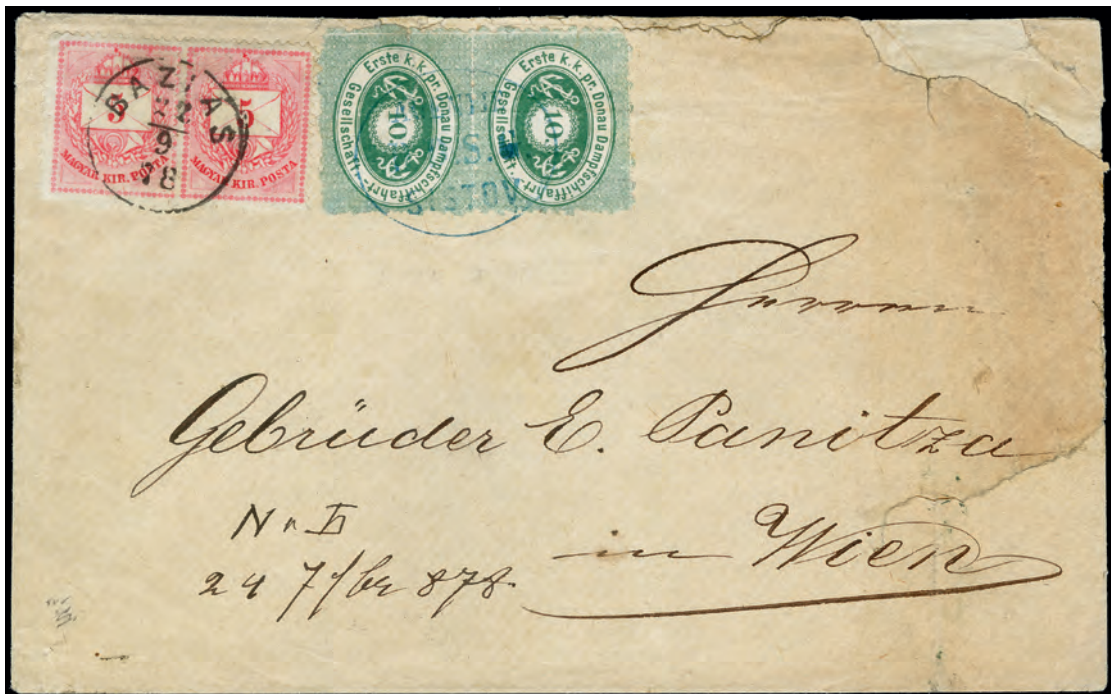 BAZIAS
9
78
5
MAGYAR KIR. POSTA
5
MAGYAR KIR. POSTA
Erste k.k. pr. Donau Dampfschiffahrt-
Gesellschaft
10
Erste k.k. pr. Donau Dampfschiffahrt-
Gesellschaft
10
Herren
Gebrüder E. Panitza
in Wien
24 7/br 878